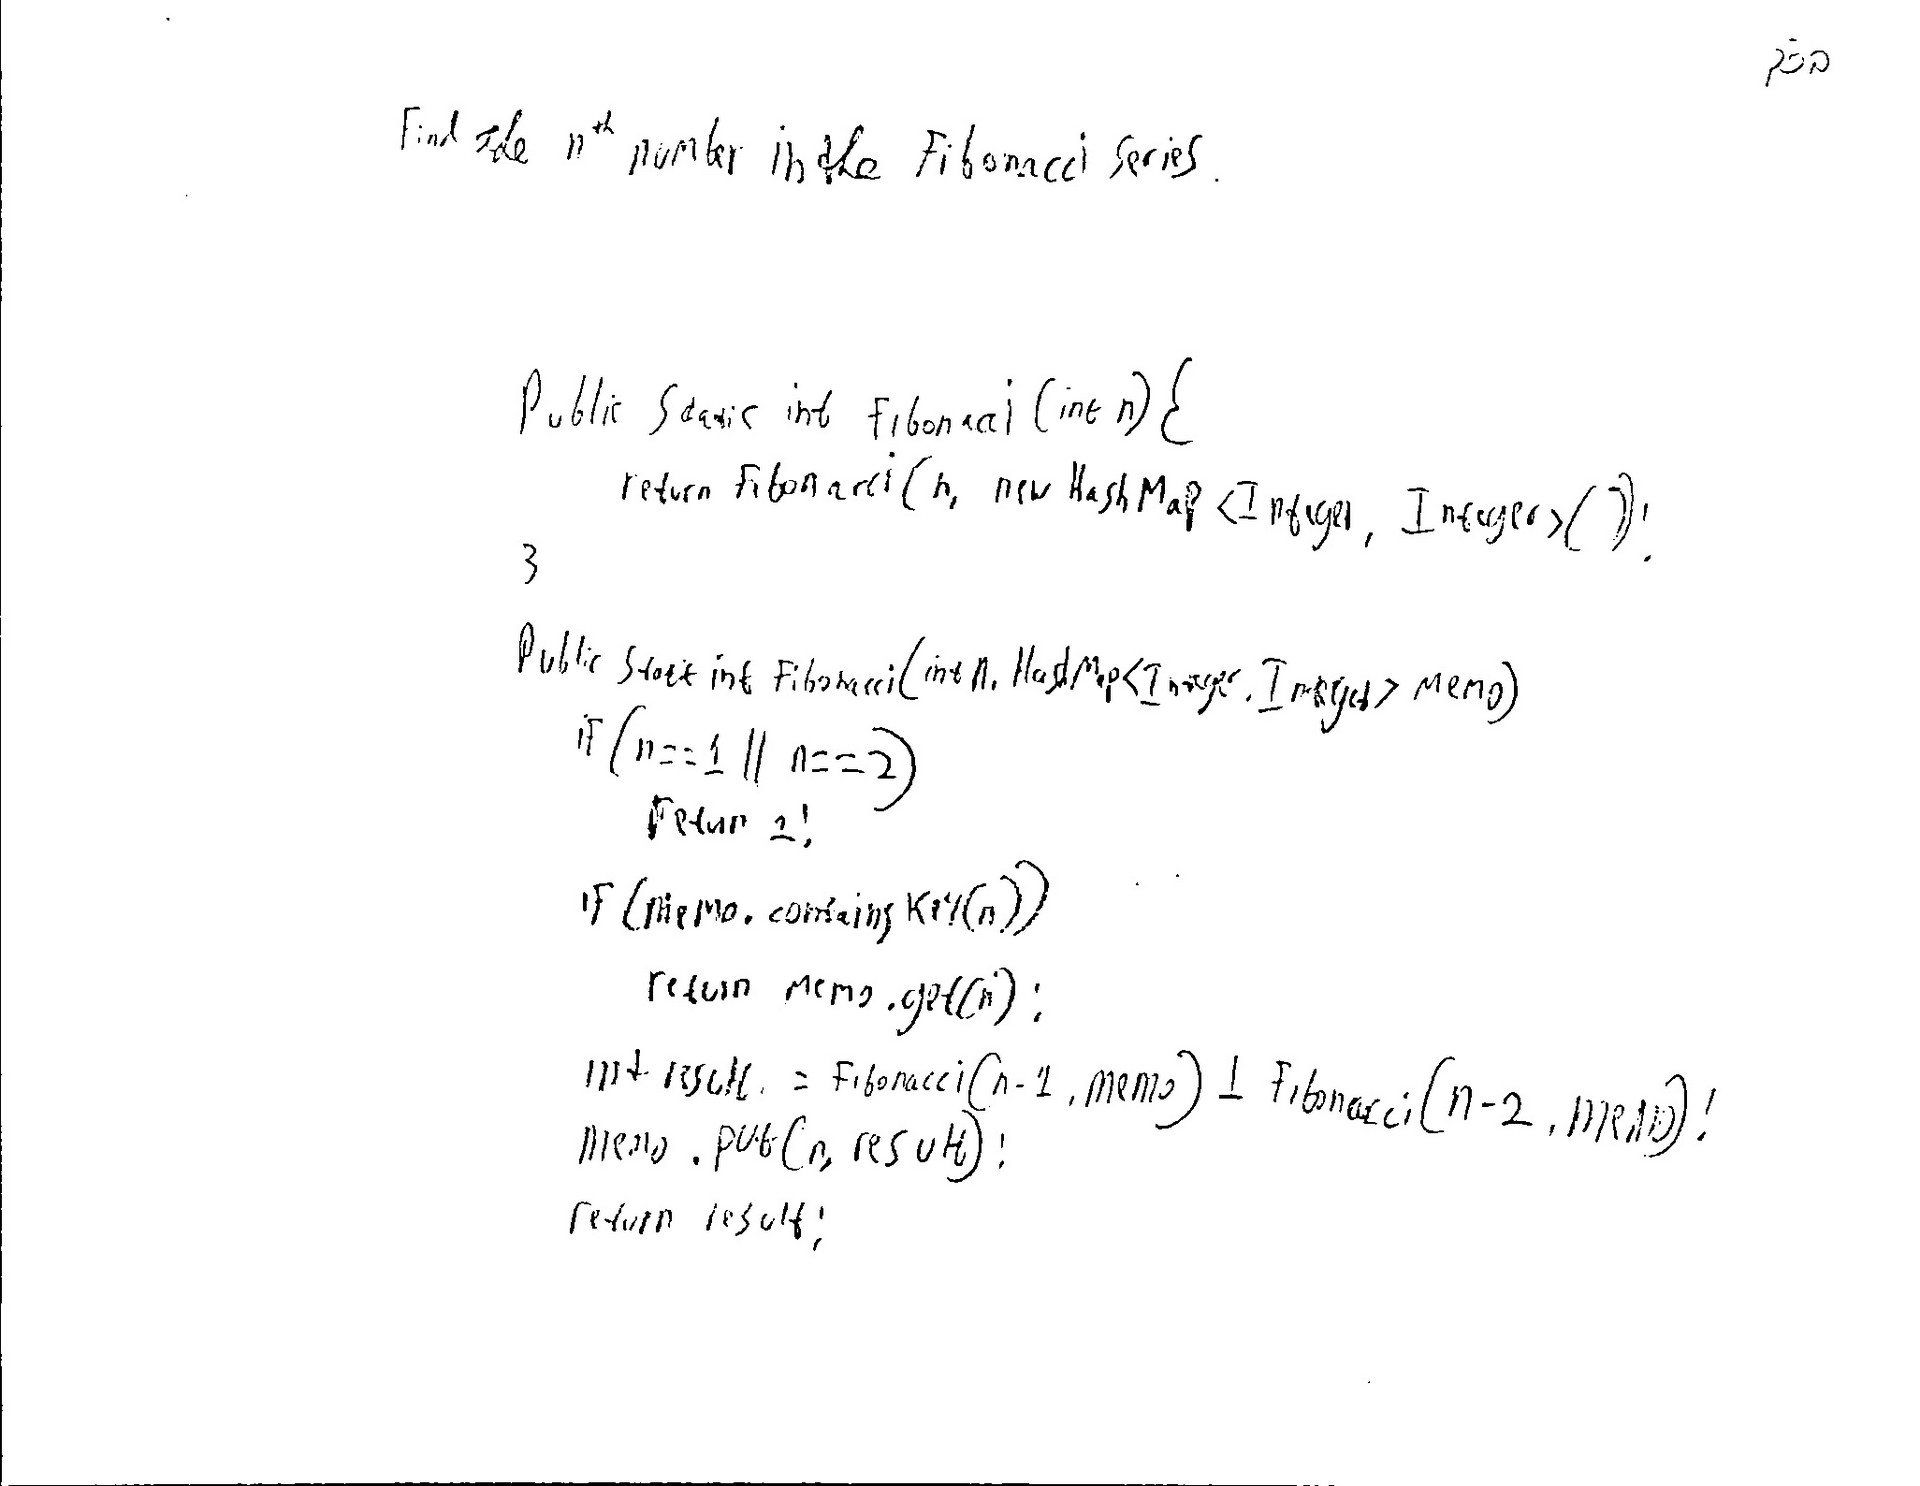 Find the nth number in the Fibonacci series.
Public Static int Fibonacci (int n) {
return Fibonacci(n, new HashMap <Integer, Integer>());
}
Public Static int Fibonacci(int n, HashMap<Integer, Integer> memo)
if (n==1 || n==2)
return 1;
if (memo.containsKey(n))
return memo.get(n);
int result = Fibonacci(n-1, memo) + Fibonacci(n-2, memo);
memo.put(n, result);
return result;